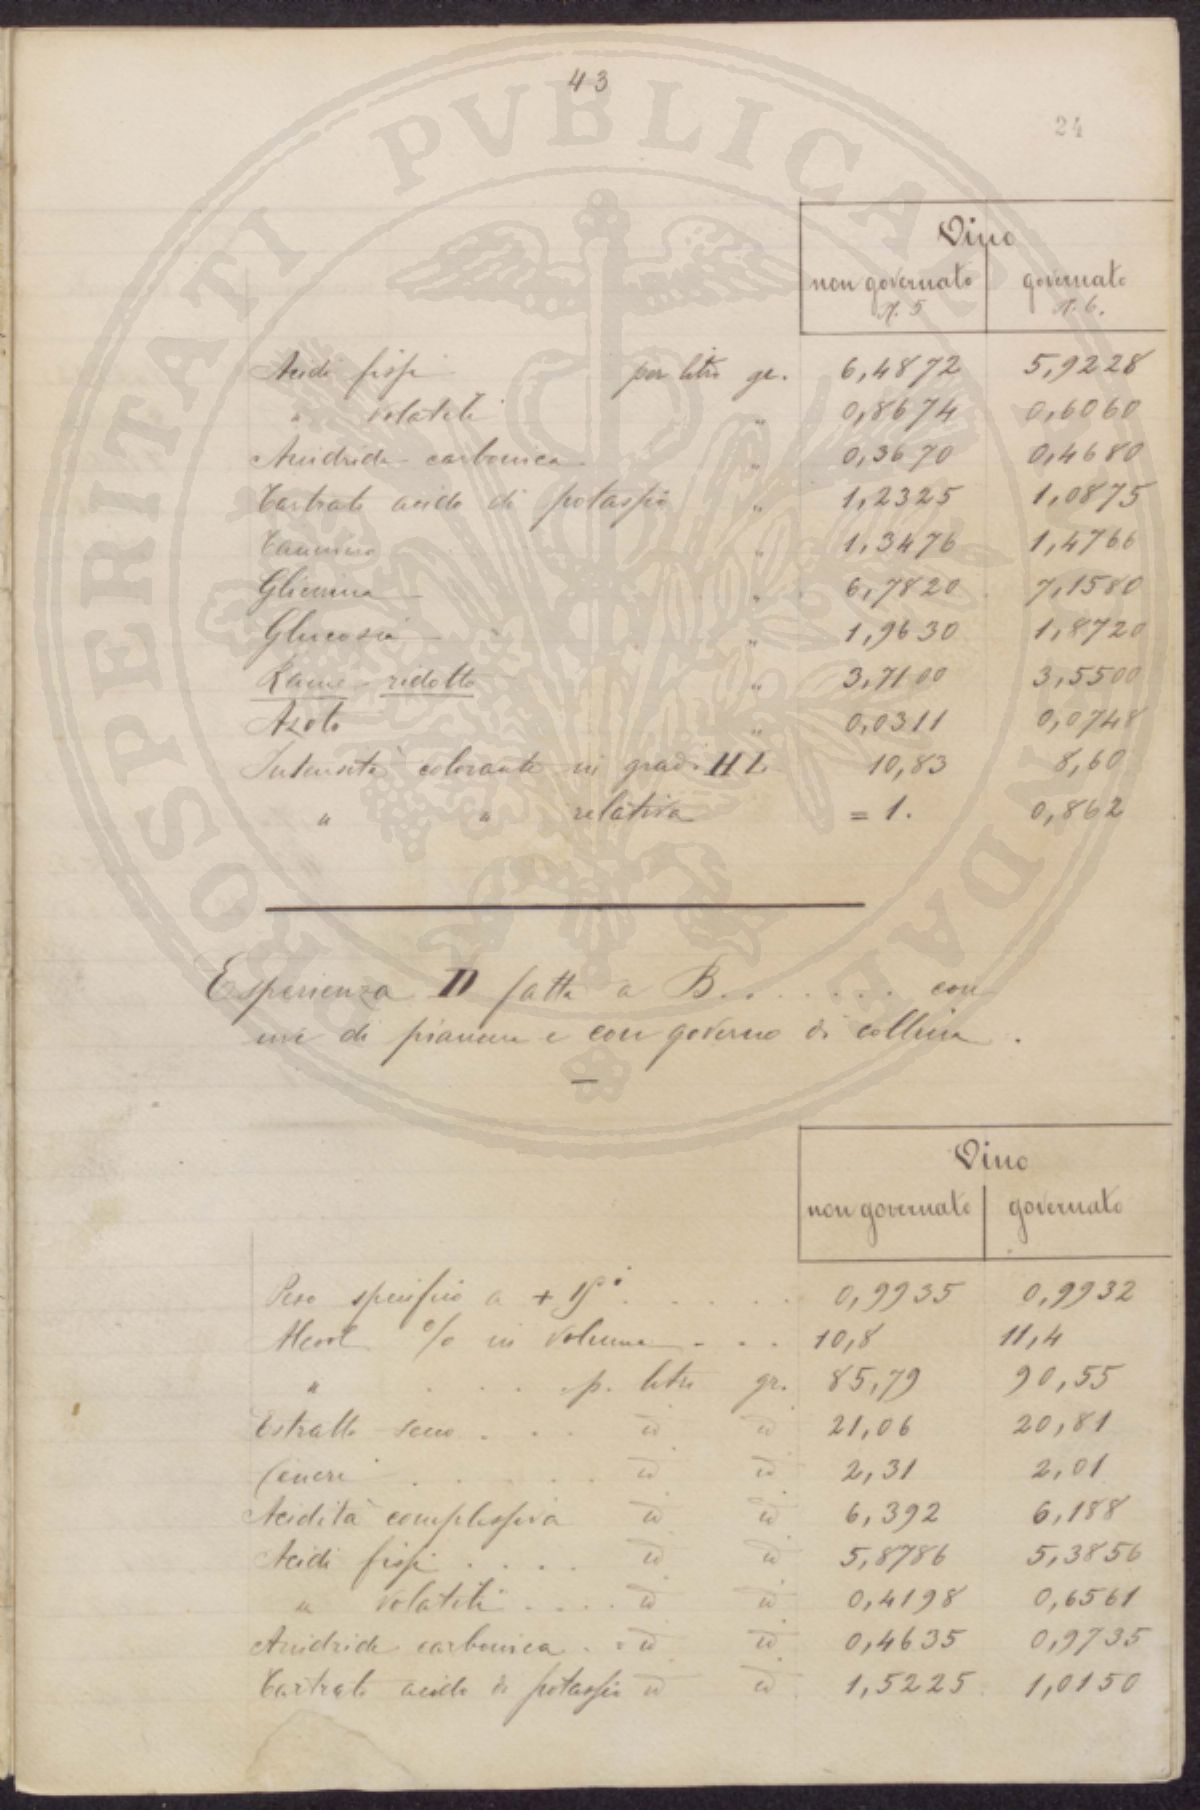 43
24
Vino
non governato governato
N. 5 N. 6.
Acidi fissi per litro gr. 6,4872 5,9228
" volatili " 0,8674 0,6060
Anidride carbonica " 0,3670 0,4680
Tartrato acido di potassio " 1,2325 1,0875
Tannino " 1,3476 1,4766
Glicerina " 6,7820 7,1580
Glucosio " 1,9630 1,8720
Rame ridotto " 3,7100 3,5500
Azoto " 0,0311 0,0748
Intensità colorante in gradi HL 10,83 8,60
" " relativa = 1. 0,862
Esperienza D fatta a B....... con
uve di pianura e con governo di collina.
Vino
non governato governato
Peso specifico a + 15° ..... 0,9935 0,9932
Alcool % in volume ... 10,8 11,4
" .... p. litro gr. 85,79 90,55
Estratto secco ... id id 21,06 20,81
Ceneri ..... id id 2,31 2,01
Acidità complessiva id id 6,392 6,188
Acidi fissi .... id id 5,8786 5,3856
" volatili .... id id 0,4198 0,6561
Anidride carbonica .. id id 0,4635 0,9735
Tartrato acido di potassio id id 1,5225 1,0150
PROSPERITATI PVBLICAE AVGENDAE